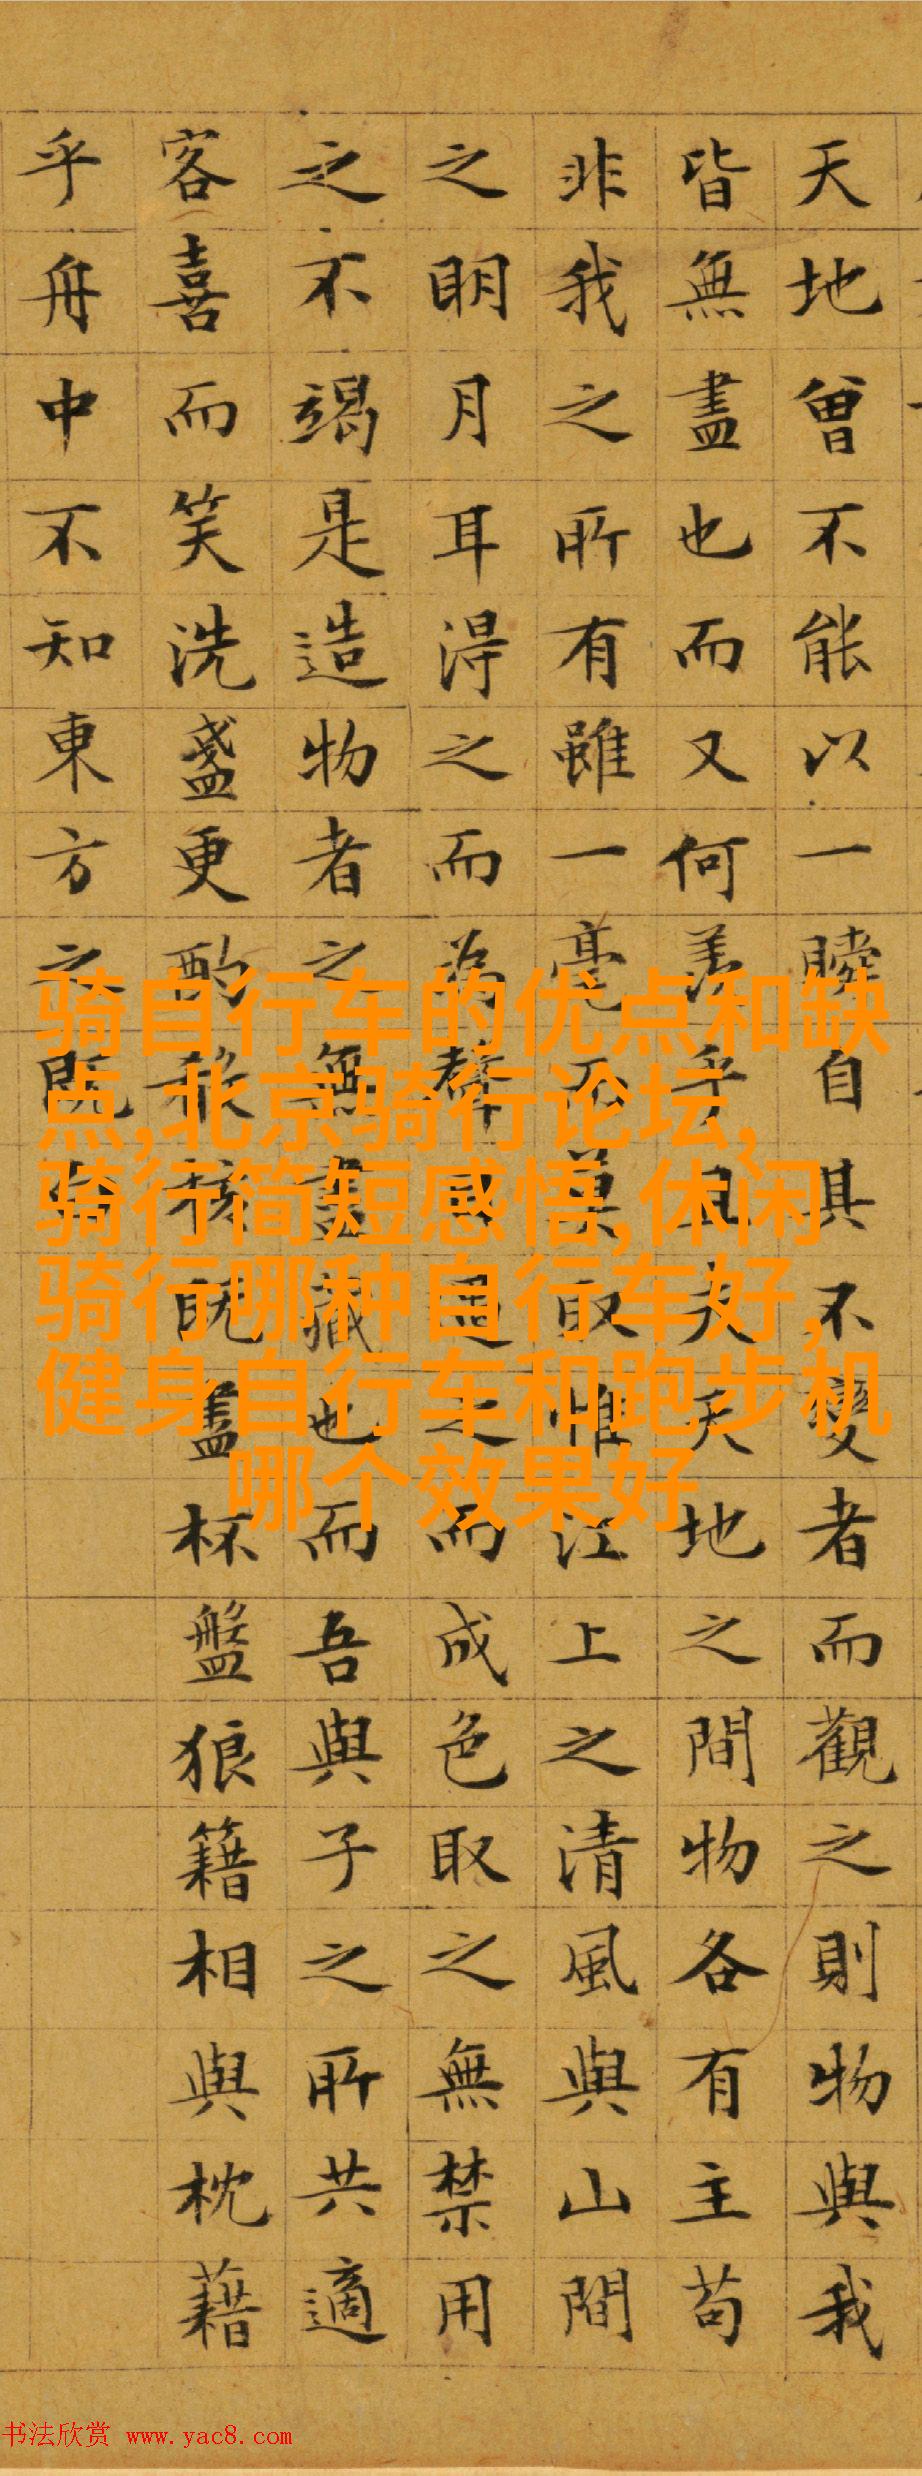 天地曾不能以一瞬自其不變者而觀之則物與我
皆無盡也而又何羨乎且夫天地之間物各有主苟
非我之所有雖一毫而莫取惟江上之清風與山間
之明月耳得之而為聲目遇之而成色取之無禁用
之不竭是造物者之無盡藏也而吾與子之所共適
客喜而笑洗盞更酌殽核既盡杯盤狼籍相與枕藉
乎舟中不知東方之既白
骑自行车的优点和缺
点,北京骑行论坛,
骑行简短感悟,休闲
骑行哪种自行车好,
健身自行车和跑步机
哪个效果好
书法欣赏 www.yac8.com